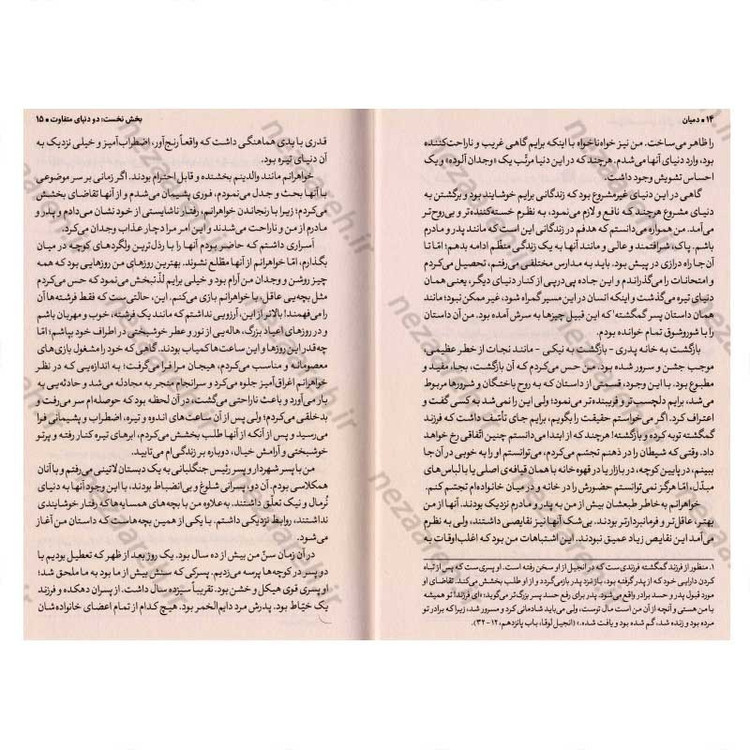 ۱۴ • دمیان
را ظاهر می‌ساخت. من نیز خواه‌ناخواه با اینکه برایم گاهی غریب و ناراحت‌کننده
بود، وارد دنیای آنها می‌شدم. هرچند که در این دنیا مرتّب یک «وجدان آلوده» و یک
احساس تشویش وجود داشت.
گاهی در این دنیای غیرمشروع بود که زندگانی برایم خوشایند بود و برگشتن به
دنیای مشروع هرچند که نافع و لازم می‌نمود، به نظرم خسته‌کننده‌تر و بی‌روح‌تر
می‌آمد. من همواره می‌دانستم که هدفم در زندگانی این است که مانند پدر و مادرم
باشم. پاک، شرافتمند و عالی و مانند آنها به یک زندگی منظّم ادامه بدهم؛ امّا تا
آن جا راه درازی در پیش بود. باید به مدارس مختلفی می‌رفتم، تحصیل می‌کردم
و امتحانات را می‌گذراندم و این جاده پی‌درپی از کنار دنیای دیگر، یعنی همان
دنیای تیره می‌گذشت و اینکه انسان در این مسیر گمراه شود، غیر ممکن نبود؛ مانند
همان داستان پسر گمگشته¹ که این قبیل چیزها به سرش آمده بود. من آن داستان
را با شوروشوق تمام خوانده بودم.
بازگشت به خانه پدری - بازگشت به نیکی - مانند نجات از خطر عظیمی،
موجب جشن و سرور شده بود. من حس می‌کردم که آن بازگشت، بجا، مفید و
مطبوع بود. با این وجود، قسمتی از داستان که به روح باختگان و شرورها مربوط
می‌شد، برایم دلچسب‌تر و فریبنده‌تر می‌نمود؛ ولی این را نمی‌شد به کسی گفت و
اعتراف کرد. اگر می‌خواستم حقیقت را بگویم، برایم جای تأسّف داشت که فرزند
گمگشته توبه کرده و بازگشته! هرچند که از ابتدا می‌دانستم چنین اتّفاقی رخ خواهد
داد. وقتی که شیطان را در ذهنم تجسّم می‌کردم، می‌توانستم او را به خوبی در آن جا
ببینم، در پایین کوچه، در بازار یا در قهوه خانه با همان قیافه‌ی اصلی یا با لباس‌های
مبدّل، امّا هرگز نمی‌توانستم حضورش را در خانه و در میان خانواده‌ام تجسّم کنم.
خواهرانم به خاطر طبعشان بیش از من به پدر و مادرم نزدیک بودند. آنها از من
بهتر، عاقل‌تر و فرمانبردارتر بودند. بی‌شک آنها نیز نقایصی داشتند، ولی به نظرم
می‌آمد این نقایص زیاد عمیق نبودند. این اشتباهات من بود که اغلب اوقات به
۱. منظور از فرزند گمگشته فرزندی ست که در انجیل از او سخن رفته است. او پسری ست که پس از تباه
کردن دارایی خود که از پدر گرفته بود، باز نزد پدر بازمی‌گردد و از او طلب بخشش می‌کند. تقاضای او
مورد قبول پدر و حسد برادر واقع می‌شود. پدر برای رفع حسد پسر بزرگ‌تر می‌گوید: «ای فرزند! تو همیشه
با من هستی و آنچه از آن من است مال توست، ولی می‌باید شادمانی کرد و مسرور شد، زیرا که برادر تو
مرده بود و زنده شد، گم شده بود و یافت شده.» (انجیل لوقا، باب پانزدهم، ۱۲ - ۳۲).
بخش نخست: دو دنیای متفاوت • ۱۵
قدری با بدی هماهنگی داشت که واقعاً رنج‌آور، اضطراب‌آمیز و خیلی نزدیک به
آن دنیای تیره بود.
خواهرانم مانند والدینم بخشنده و قابل احترام بودند. اگر زمانی بر سر موضوعی
با آنها بحث و جدل می‌نمودم، فوری پشیمان می‌شدم و از آنها تقاضای بخشش
می‌کردم؛ زیرا با رنجاندن خواهرانم، رفتار ناشایستی از خود نشان می‌دادم و پدر و
مادرم از من ناراحت می‌شدند و این امر مرا دچار عذاب وجدان می‌کرد.
اسراری داشتم که حاضر بودم آنها را با رذل‌ترین ولگردهای کوچه در میان
بگذارم، امّا خواهرانم از آنها مطّلع نشوند. بهترین روزهای من روزهایی بود که همه
چیز روشن و وجدان من آرام بود و خیلی برایم لذّتبخش می‌نمود که حس می‌کردم
مثل بچه‌یی عاقل با خواهرانم بازی می‌کنم. این، حالتی ست که فقط فرشته‌ها آن
را می‌فهمند! بالاتر از این، آرزویی نداشتم که مانند یک فرشته، خوب و مهربان باشم
و در روزهای اعیاد بزرگ، هاله‌یی از نور و عطر خوشبختی در اطراف خود بپاشم؛ امّا
چه‌قدر این روزها و این ساعت‌ها کمیاب بودند. گاهی که خود را مشغول بازی‌های
معصومانه و مناسب می‌کردم، هیجان مرا فرا می‌گرفت؛ به اندازه‌یی که در نظر
خواهرانم اغراق‌آمیز جلوه می‌کرد و سرانجام منجر به مجادله می‌شد و حادثه‌یی به
بار می‌آورد و باعث ناراحتی می‌گشت، در آن لحظه بود که حوصله‌ام سر می‌رفت و
بدخلقی می‌کردم؛ ولی پس از آن ساعت‌های اندوه و تیره، اضطراب و پشیمانی فرا
می‌رسید و پس از آنکه از آنها طلب بخشش می‌کردم، ابرهای تیره کنار رفته و پرتو
خوشبختی و آرامش خیال، دوباره بر زندگی‌ام می‌تابید.
من با پسر شهردار و پسر رئیس جنگلبانی به یک دبستان لاتینی می‌رفتم و با آنان
همکلاسی بودم. آن دو، پسرانی شلوغ و بی‌انضباط بودند، با این وجود آنها به دنیای
نُرمال و نیک تعلّق داشتند. به‌علاوه من با بچه‌های همسایه‌ها که رفتار خوشایندی
نداشتند، روابط نزدیکی داشتم. با یکی از همین بچه‌هاست که داستان من آغاز
می‌شود.
در آن زمان سنّ من بیش از ده سال بود. یک روز بعد از ظهر که تعطیل بودیم با
دو پسر در کوچه‌ها پرسه می‌زدیم. پسرکی که سنش بیش از ما بود به ما ملحق شد؛
او پسری قوی هیکل و خشن بود. تقریباً سیزده سال داشت. از پسران دهکده و فرزند
یک خیّاط بود. پدرش مرد دایم‌الخمر بود. هیچ کدام از تمام اعضای خانواده‌شان
nezaareh.ir